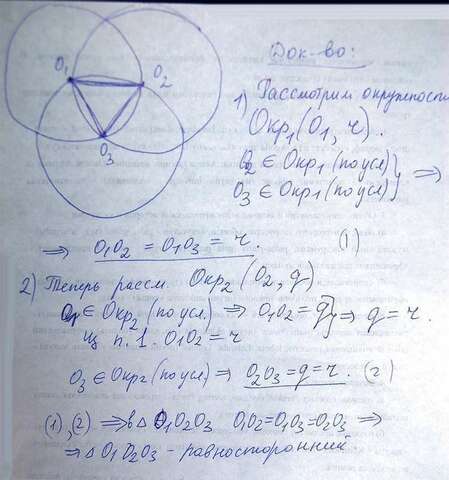 O₁
O₂
O₃
Док-во:
1) Рассмотрим окружност
Окр₁(O₁, r).
O₂ ∈ Окр1 (по усл)
O₃ ∈ Окр1 (по усл) } ⇒
⇒ O₁O₂ = O₁O₃ = r. (1)
2) Теперь рассм. Окр₂(O₂, q)
O₁ ∈ Окр₂ (по усл.) ⇒ O₁O₂ = q } ⇒ q = r.
Из п. 1. O₁O₂ = r
O₃ ∈ Окр2 (по усл) ⇒ O₂O₃ = q = r. (2)
(1), (2) ⇒ в Δ O₁O₂O₃ O₁O₂ = O₁O₃ = O₂O₃ ⇒
⇒ Δ O₁O₂O₃ - равносторонний.